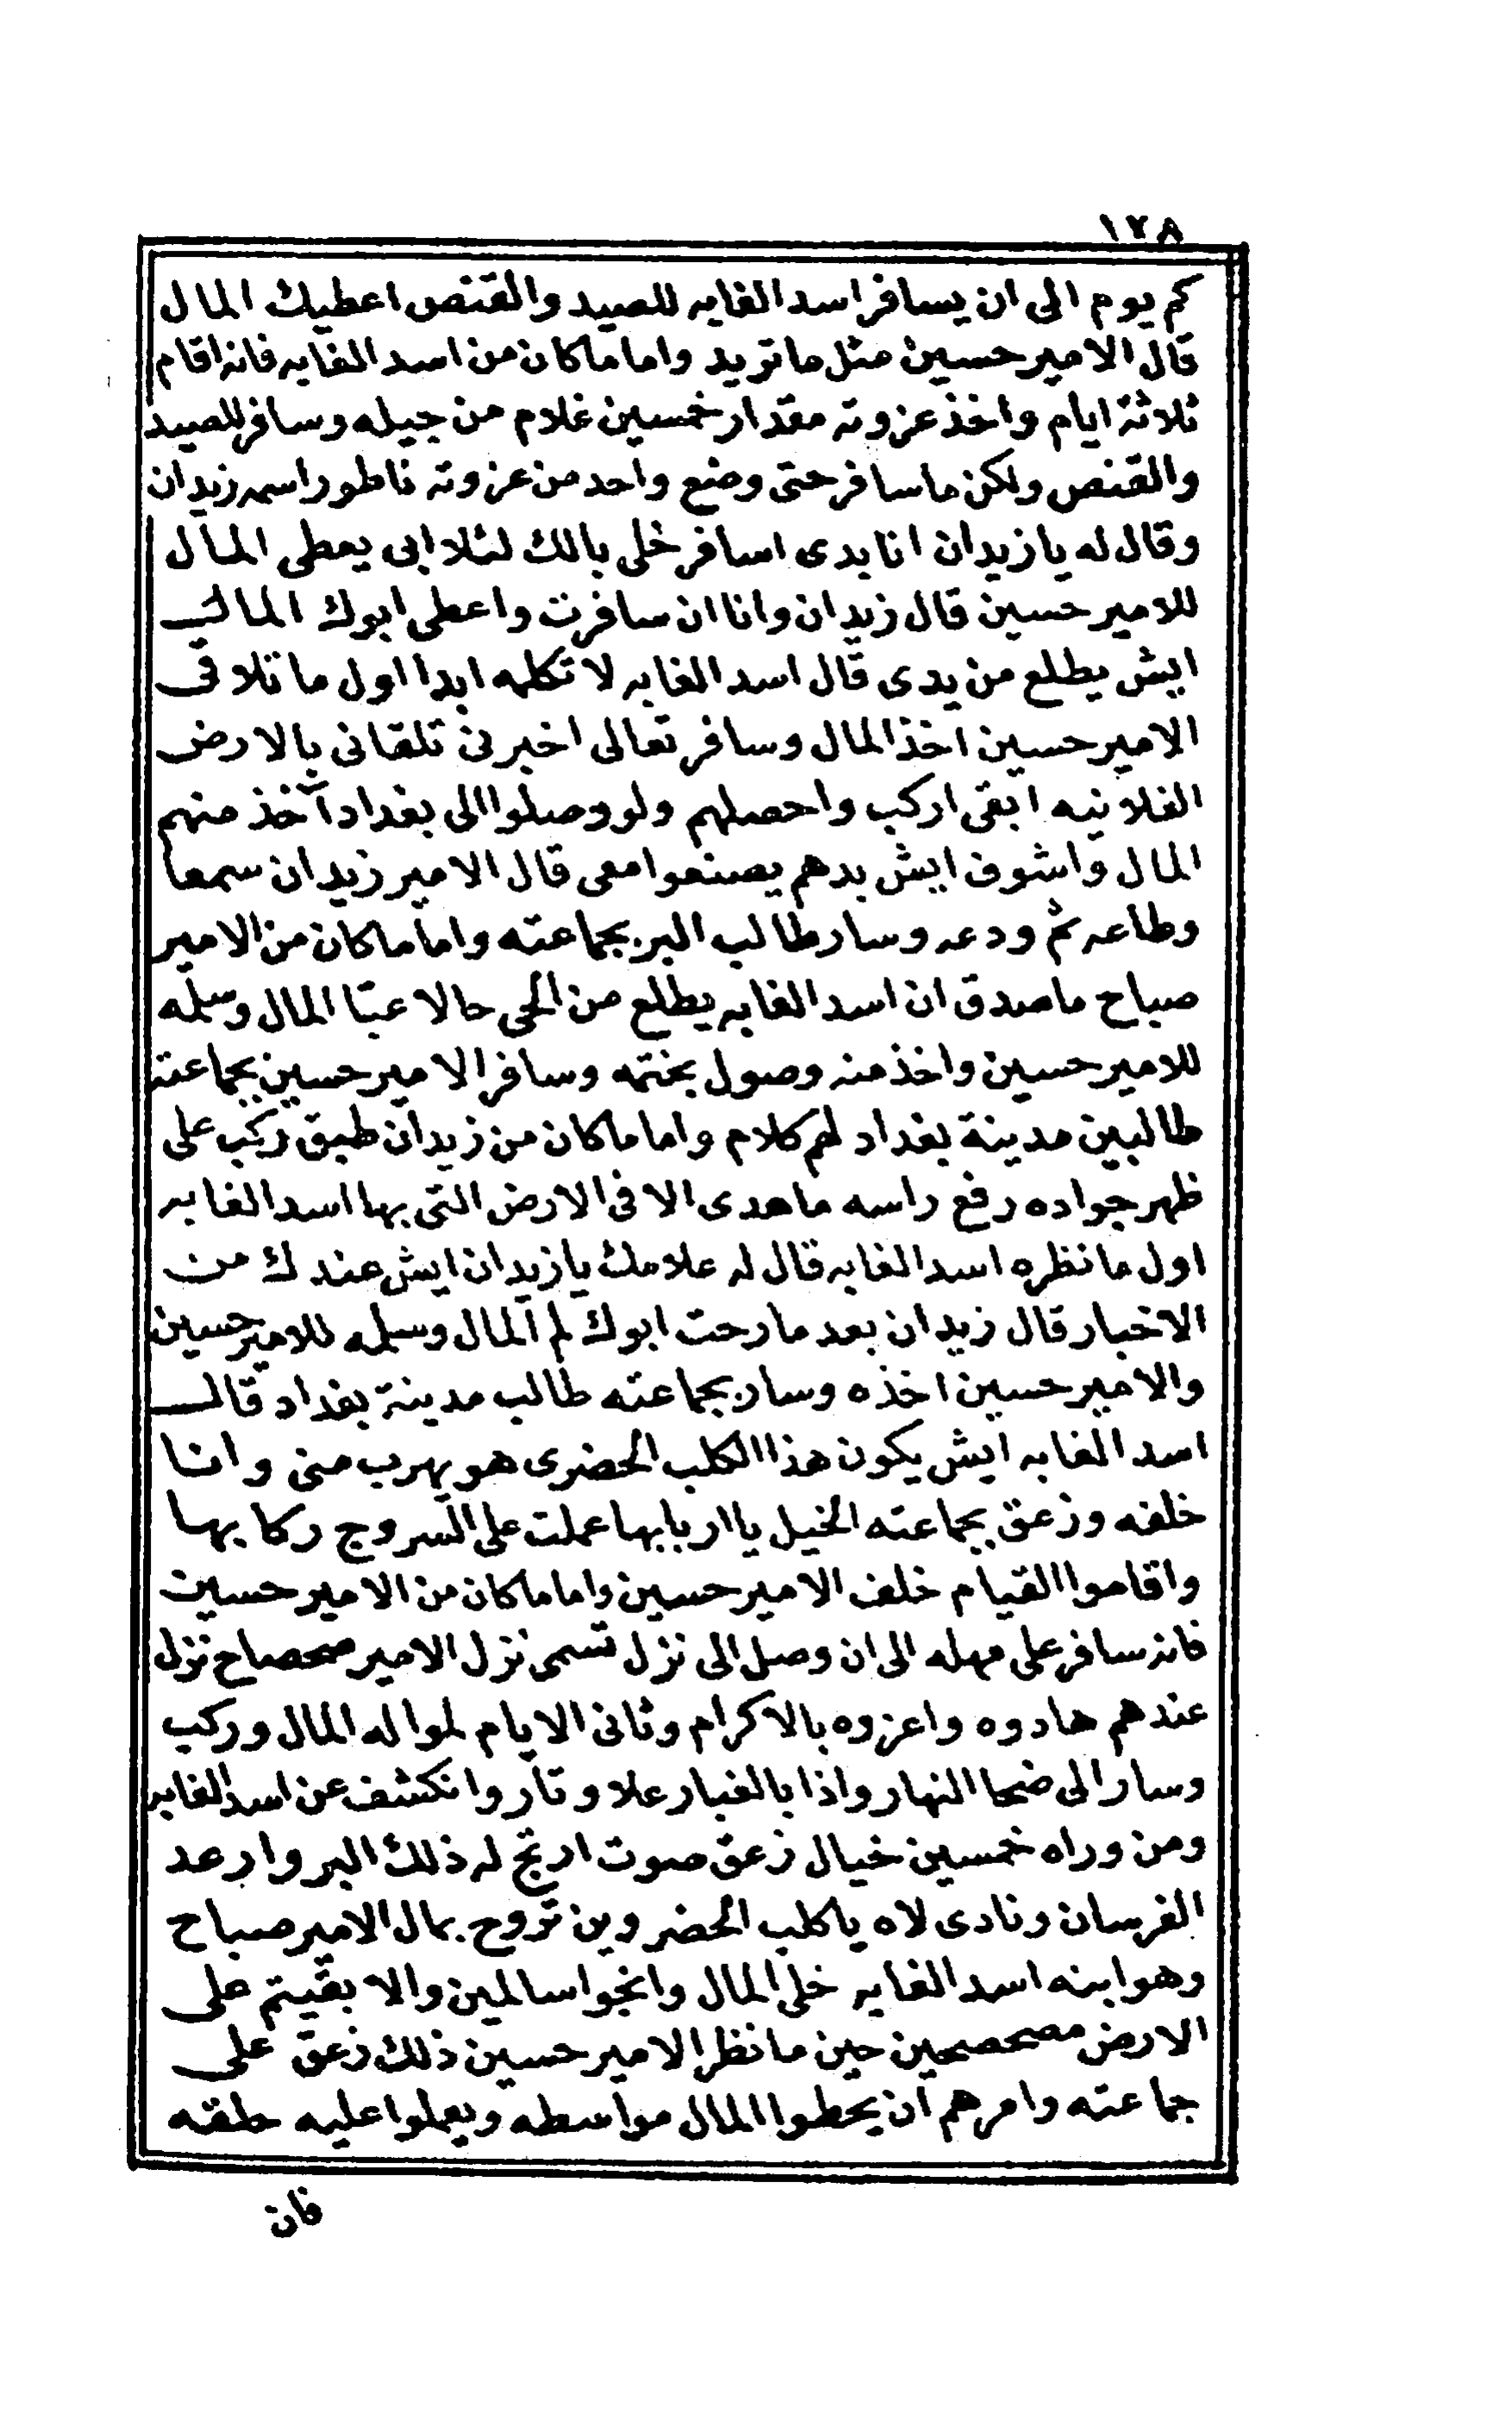 ١٢٨
كم يوم الى ان يسافر اسد الغابه للصيد والقنص اعطيك المال
قال الامير حسين مثل ما تريد واما ما كان من اسد الغابه فانه اقام
ثلاثة ايام واخذ عزوته مقدار خمسين غلام من جيله وسافر للصيد
والقنص ولكن ما سافر حتى وضع واحد من عزوته ناطور اسمه زيدان
وقال له يا زيدان انا بدى اسافر خلى بالك لئلا ابى يعطى المال
للامير حسين قال زيدان وانا ان سافرت واعطى ابوك المال
ايش يطلع من يدى قال اسد الغابه لا تكلمه ابدا اول ما تلاقى
الامير حسين اخذ المال وسافر تعالى اخبرنى تلقانى بالارض
الفلانيه ابقى اركب واحصلهم ولو وصلوا الى بغداد آخذ منهم
المال واشوف ايش بدهم يصنعوا معى قال الامير زيدان سمعا
وطاعه ثم ودعه وسار طالب البر بجماعته واما ما كان من الامير
صباح ما صدق ان اسد الغابه يطلع من الحى حالا عبّا المال وسلمه
للامير حسين واخذ منه وصول بختمه وسافر الامير حسين بجماعته
طالبين مدينة بغداد لهم كلام واما ما كان من زيدان طبق ركب على
ظهر جواده رفع راسه ما هدى الا فى الارض التى بها اسد الغابه
اول ما نظره اسد الغابه قال له علامك يا زيدان ايش عندك من
الاخبار قال زيدان بعد ما رحت ابوك لم المال وسلمه للامير حسين
والامير حسين اخذه وسار بجماعته طالب مدينة بغداد قال
اسد الغابه ايش يكون هذا الكلب الحضرى هو يهرب منى وانا
خلفه وزعق بجماعته الخيل يا اربابها عملت على السروج ركابها
واقاموا القيام خلف الامير حسين واما ما كان من الامير حسين
فانه سافر على مهله الى ان وصل الى نزل تسمى نزل الامير محصاح نزل
عندهم هادوه واعزوه بالاكرام وثانى الايام لموا له المال وركب
وسار الى ضحا النهار واذا بالغبار علا وتار وانكشف عن اسد الغابه
ومن وراه خمسين خيال زعق صوت ارتج له ذلك البر وارعد
الفرسان ونادى لاه يا كلب الحضر وين تروح بمال الامير صباح
وهو ابنه اسد الغابه خلى المال وانجوا سالمين والا بقيتم على
الارض مصحصحين حين ما نظر الامير حسين ذلك زعق على
جماعته وامرهم ان يحطوا المال مواسطه ويعملوا عليه حلقه
فان